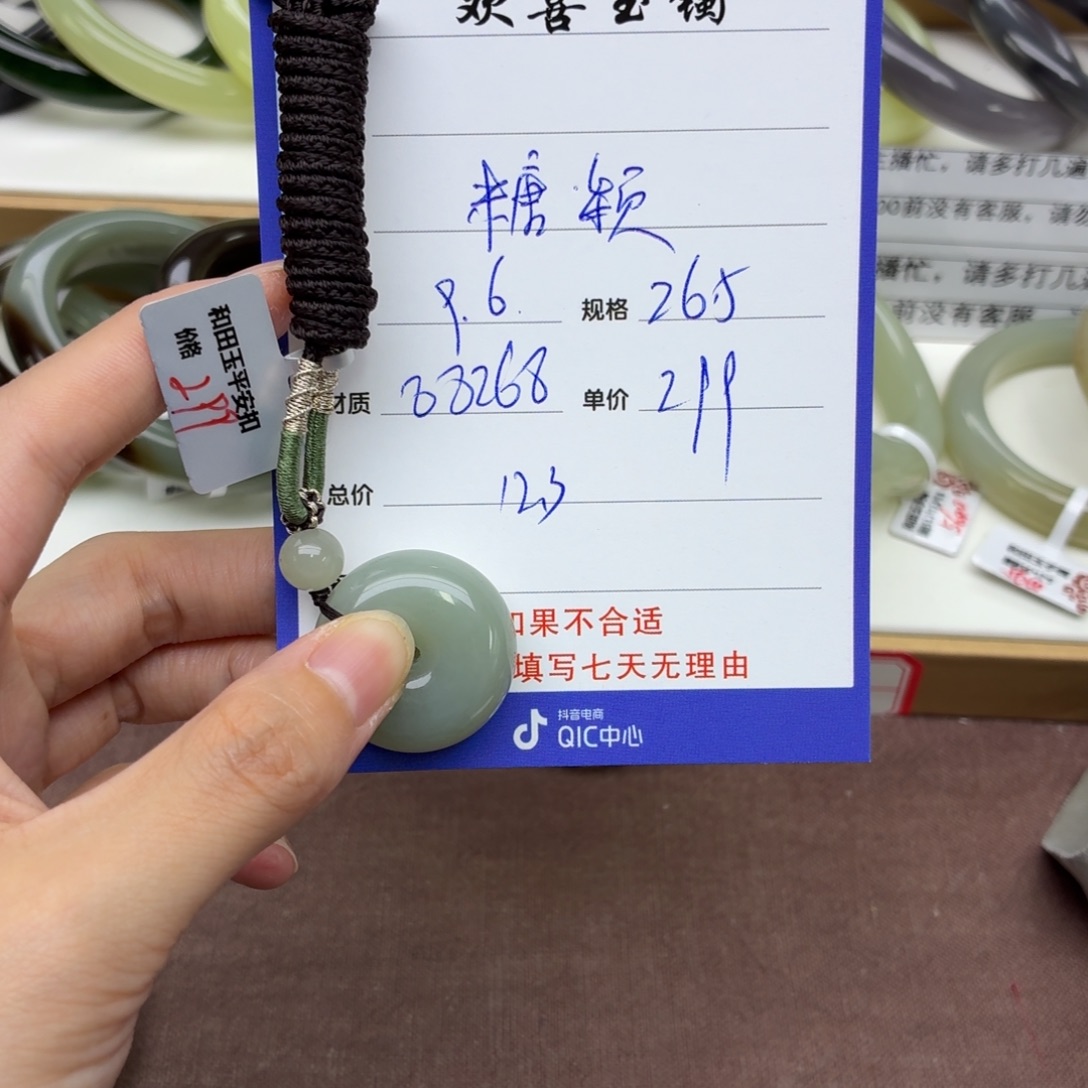 欢喜玉镯
糖颖
9.6 规格 265
材质 88268 单价 299
总价 12.3
如果不合适
填写七天无理由
抖音电商
QIC中心
和田玉平安扣
价格 299
主播忙，请多打几遍
00前没有客服，请勿
播忙，请多打几
前没有客服，请